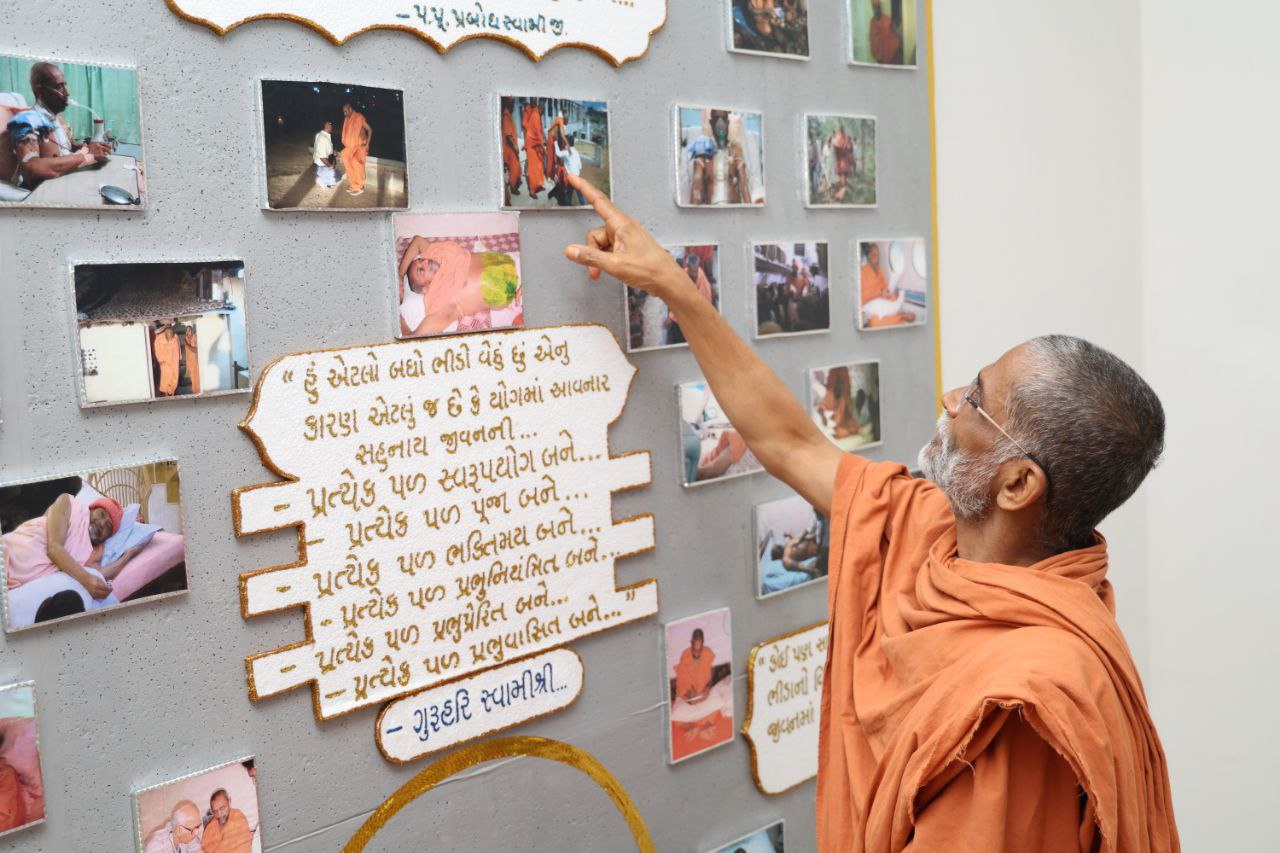 – પ.પૂ. પ્રબોધસ્વામીજી.
“ હું એટલો બધો ભીડો વેઠું છું એનુ
કારણ એટલું જ છે કે યોગમાં આવનાર
સહુનાય જીવનની...
- પ્રત્યેક પળ સ્વરૂપયોગ બને...
- પ્રત્યેક પળ પૂજા બને...
- પ્રત્યેક પળ ભક્તિમય બને...
- પ્રત્યેક પળ પ્રભુનિયંત્રિત બને..
- પ્રત્યેક પળ પ્રભુપ્રેરિત બને...
- પ્રત્યેક પળ પ્રભુવાસિત બને...”
– ગુરૂહરિ સ્વામીશ્રી...
“ કોઈ પણ
ભીડાનો
જીવનમાં